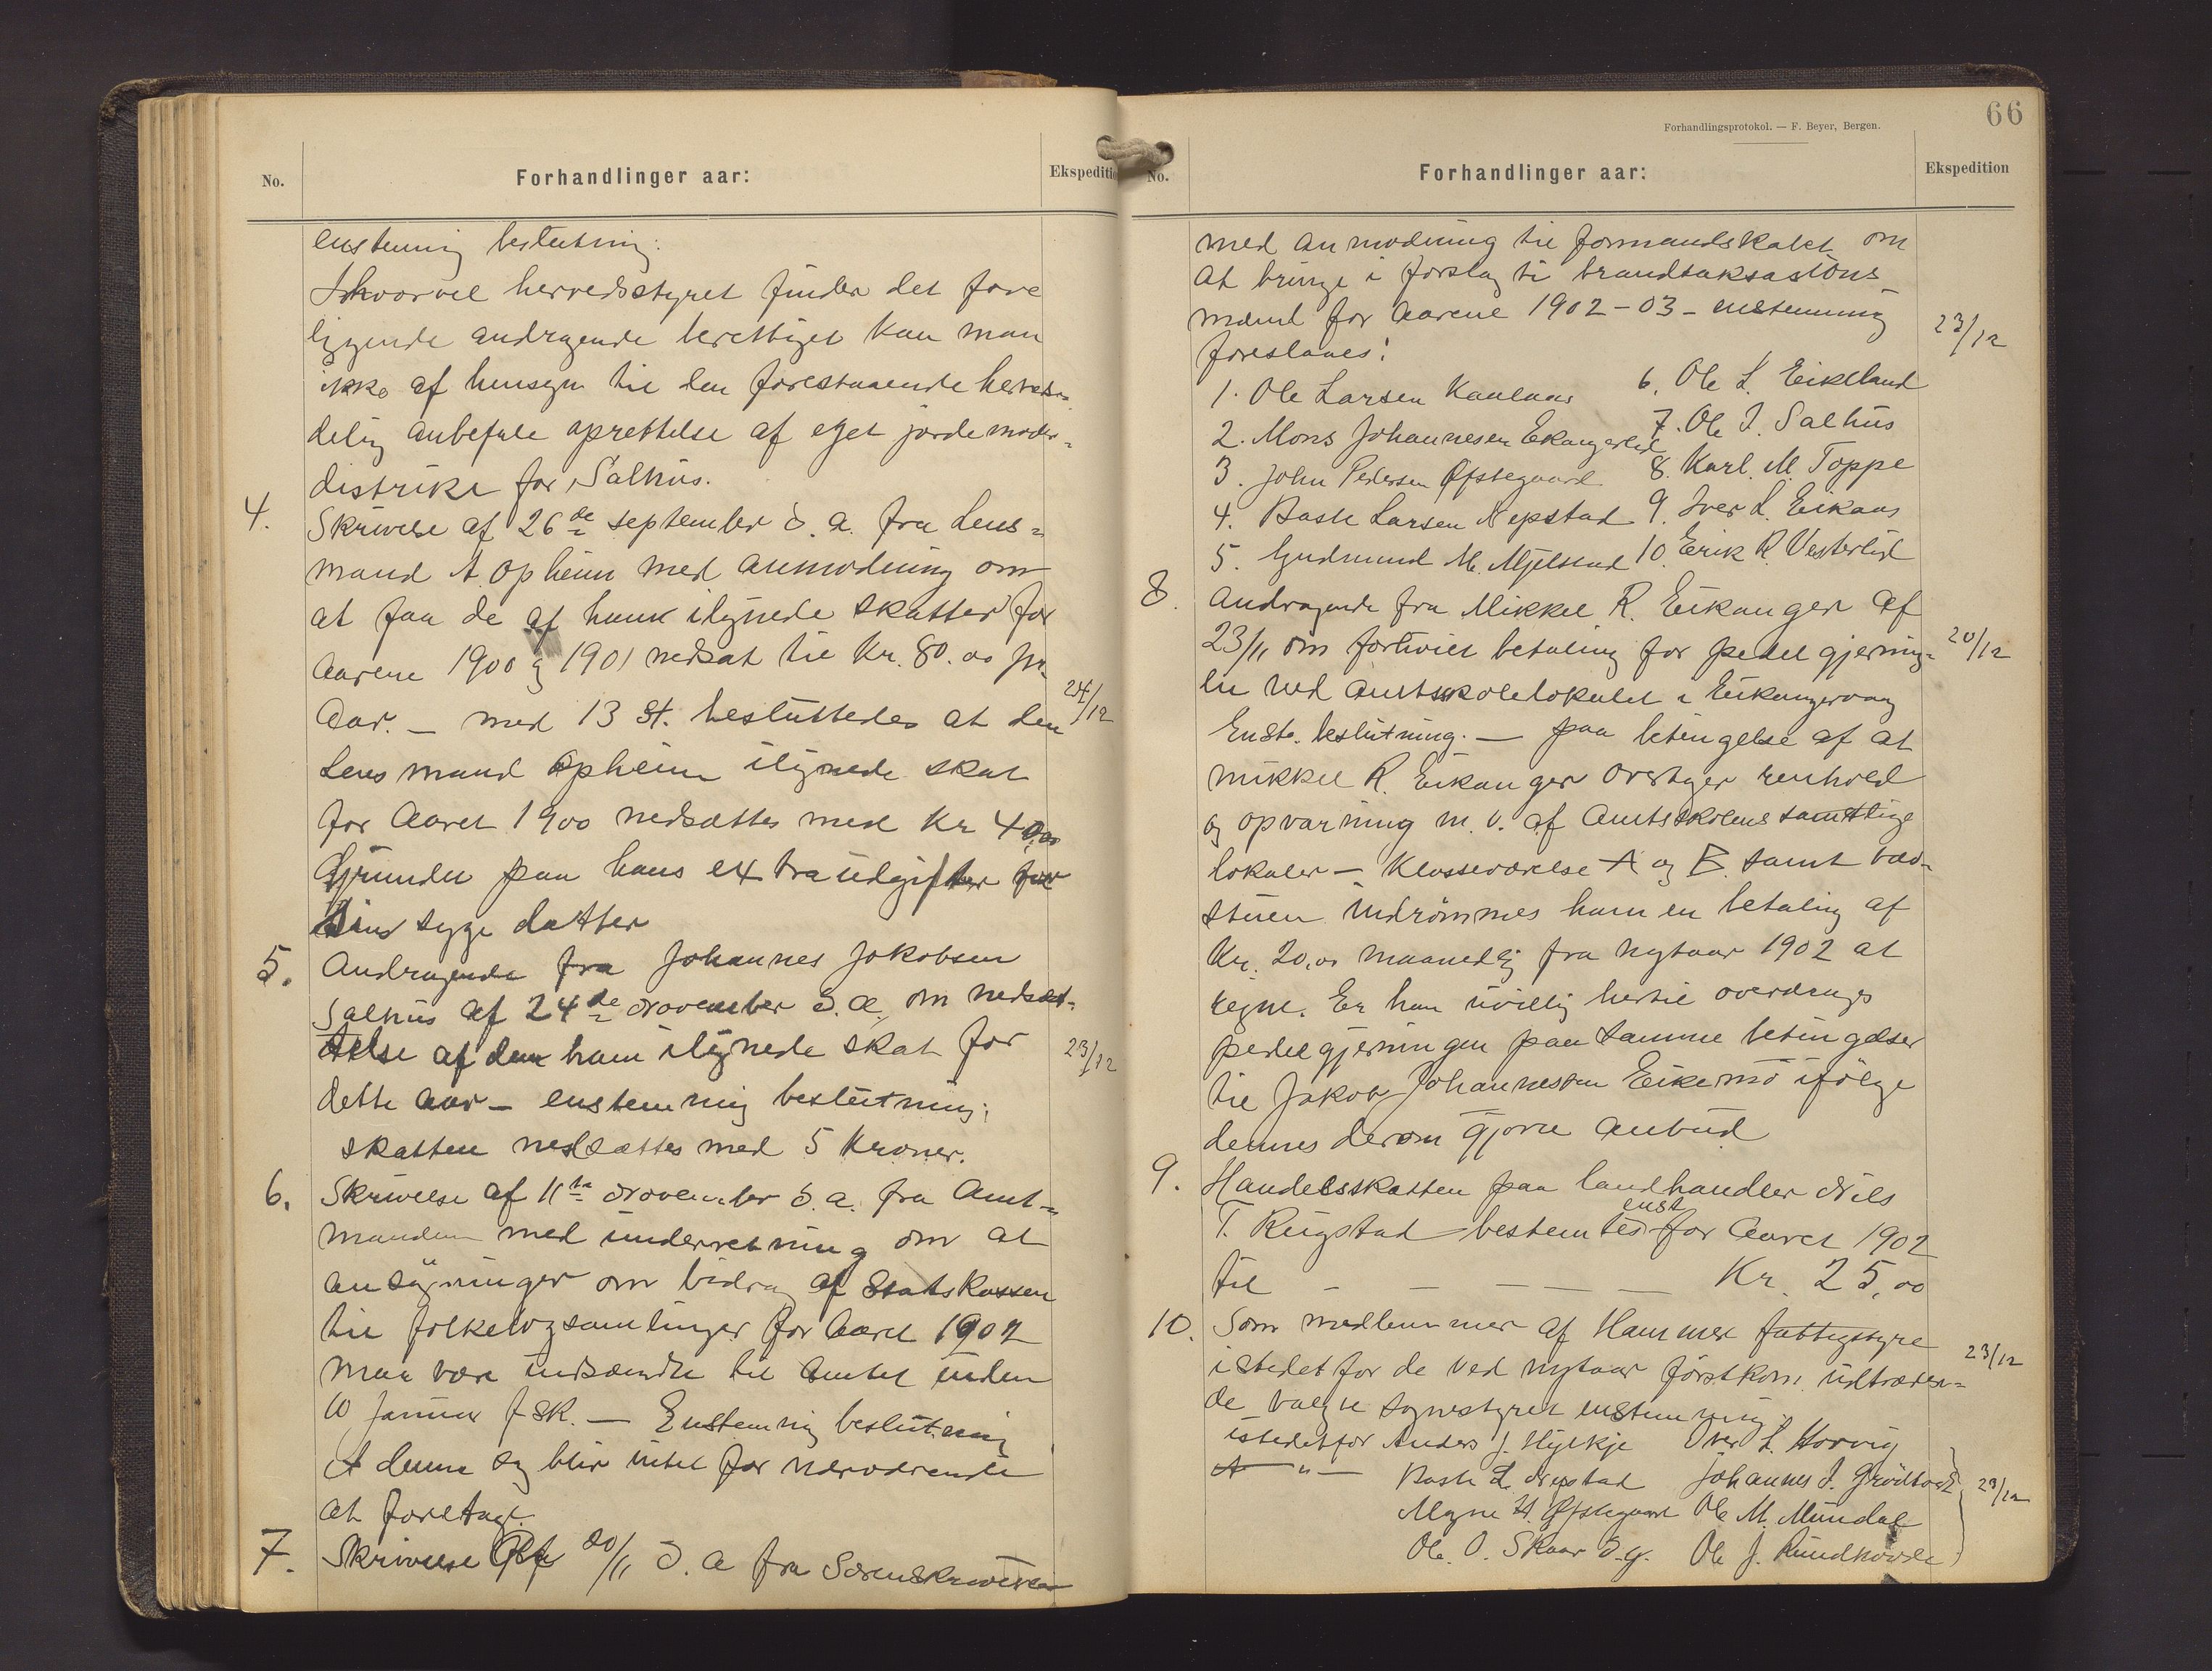 No.
Forhandlinger aar:
Ekspeditio
enstemig beslutning:
Ihvorvel herredsstyret finder det fore
liggende andragende berettiget kan man
ikke af hensyn til den forestaaende herreds-
deling anbefale oprettelse af eget jordemoder=
distrikt for Salhus.
4.
Skrivelse af 26de september d. a. fra Lens=
mand A. Opheim med anmodning om
at faa de af ham ilignede skatter for
Aarene 1900 og 1901 nedsat til Kr. 80.00 pr.
Aar. — med 13 St. besluttedes at den
24/12
Lensmand Opheim ilignede skat
for Aaret 1900 nedsættes med Kr 40,00
Grundet paa hans extraudgifter for
sin syge datter
5.
Andragende fra Johannes Jakobsen
Salhus af 24de november d. a. om nedsæt-
telse af den ham ilignede skat for
23/12
dette Aar — enstemmig beslutning;
skatten nedsættes med 5 Kroner.
6.
Skrivelse af 11te november d. a. fra Amt=
manden med underretning om at
ansøgninger om bidrag af Statskassen
til folkebogsamlinger for Aaret 1902
maa være indsendte til Amtet inden
10 Januar f. sk. — Enstemmig beslutning
I denne sag blir intet for nærværende
at foretage.
7.
Skrivelse af 20/11 d. a fra Sorenskriveren
66
Forhandlingsprotokol. — F. Beyer, Bergen.
No.
Forhandlinger aar:
Ekspedition
med anmodning til formandskabet om
at bringe i forslag ti brandtaksastions-
mænd for Aarene 1902-03 - enstemmig
23/12
foreslaaes:
1. Ole Larsen Kaalaas
6. Ole L. Eikeland
2. Mons Johannesen Ekangerlid
7. Ole J. Salhus
3. John Pedersen Øfstegaard
8. Karl M. Toppe
4. Baste Larsen Nepstad
9. Iver L. Eikaas
5. Gudmund M. Mjelstad
10. Erik R. Vesterlid
8.
Andragende fra Mikkel R. Eikanger af
23/11 om forhøiet betaling for pedelgjerning=
20/12
en ved Amtsskolelokalet i Eikangervaag
Enst. beslutning. — paa betingelse af at
Mikkel R. Eikanger overtager renhold
og opvarming m. v. af Amtsskolens samtlige
lokaler — Klasseværelse A og B samt væv-
stuen indrømmes ham en betaling af
Kr. 20,00 maanedlig fra nytaar 1902 at
regne. Er han uvillig hertil overdrages
pedelgjerningen paa samme betingelser
til Jakob Johannesen Eikemo ifølge
dennes derom gjorte anbud
9.
Handelsskatten paa landhandler Nils
T. Rugstad bestemtes enst for Aaret 1902
til — — — — Kr. 25,00
10.
Som medlemmer af Hammer fattigstyre
23/12
istedet for de ved nytaar førstkom. udtræden=
de valgte sognestyret enstemmig
istedetfor Anders J. Hylkje Iver L. Horvig
— " — Baste L. Nepstad Johannes J.
23/12
Magne H. Øfstegaard Ole M. Mundal
Ole O. Skaar d. y. Ole J. Rundhovde